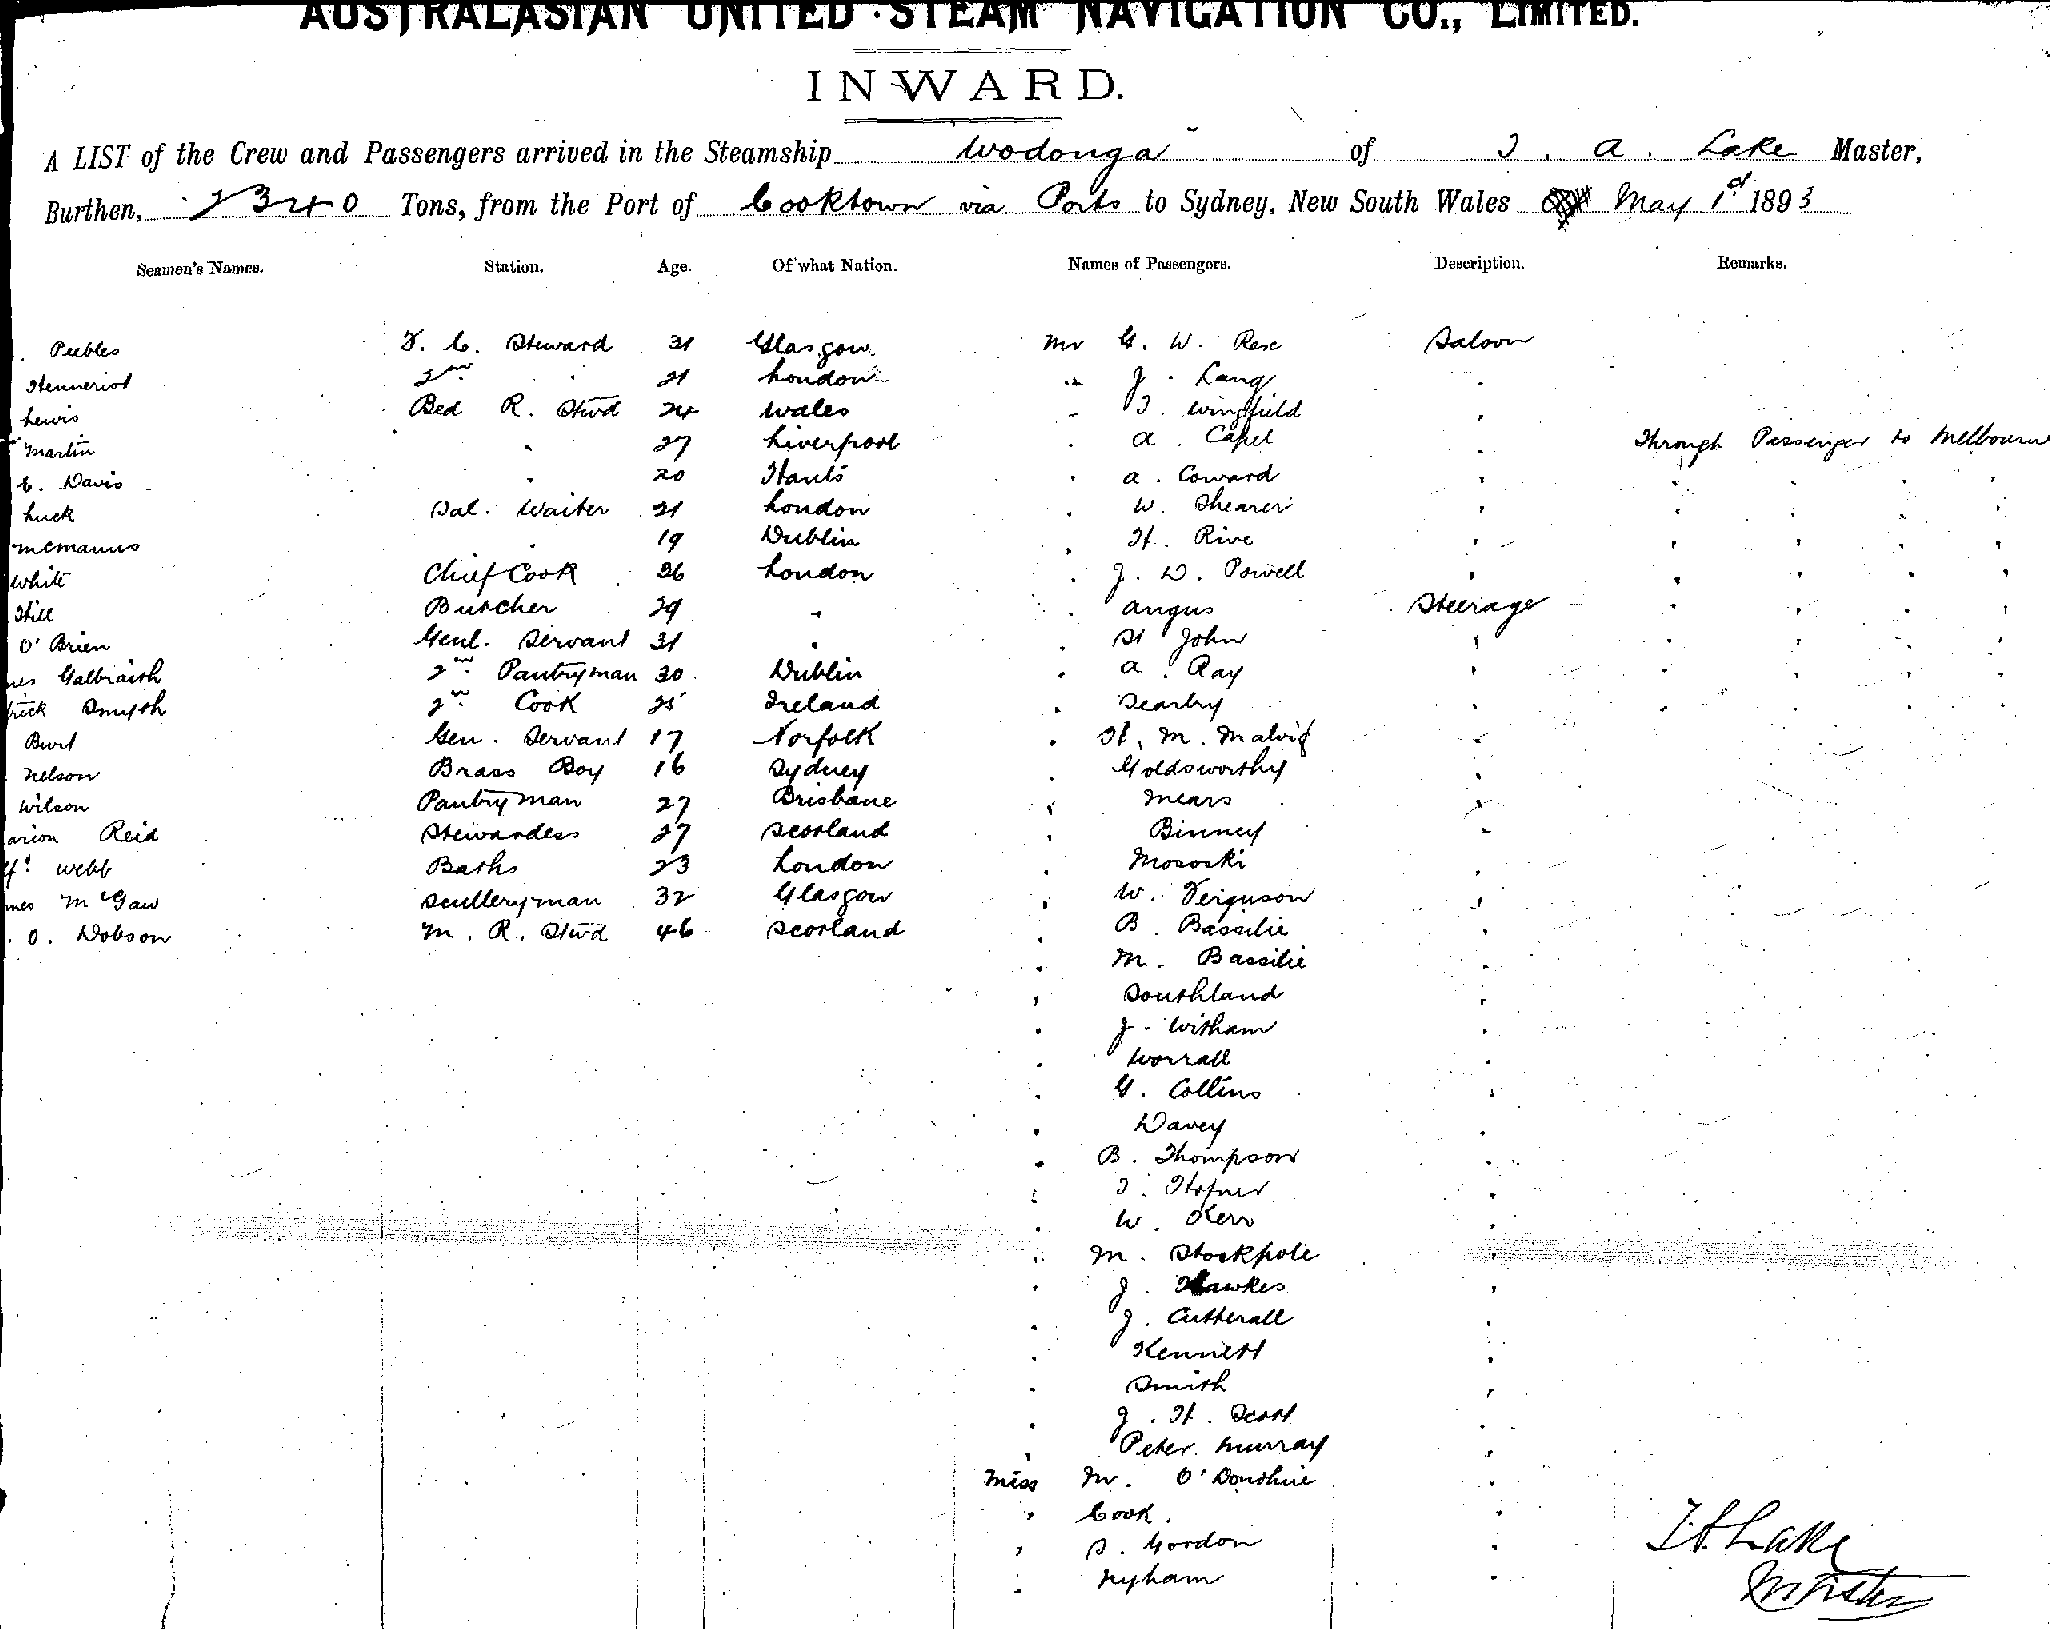 AUSTRALASIAN UNITED STEAM NAVIGATION CO., LIMITED.
INWARD.
A LIST of the Crew and Passengers arrived in the Steamship Wodonga of T. A. Lake Master,
Burthen, 2340 Tons, from the Port of Cooktown via Ports to Sydney, New South Wales May 1st 1893
Seamen's Names. Station. Age. Of what Nation. Names of Passengers. Description. Remarks.
Peebles F. C. Steward 31 Glasgow Mr G. W. Rose Saloon
2nd 21 London " J. Lang "
Lewis Bed R. Stwd 24 Wales " T. Wingfield "
Martin " 27 Liverpool " A. Capel Through Passenger to Melbourne
E. Davis " 20 Hants " A. Coward " " " " "
Luck Sal. Waiter 21 London " W. Shearer " " " " "
McManus " 19 Dublin " H. Rive " " " " "
White Chief Cook 26 London " J. D. Powell " " " " "
Hill Butcher 29 " " Angus Steerage " " " "
O'Brien Genl. Servant 31 " " St John " " " " "
mes Galbraith 2nd Pantryman 30 Dublin " A. Ray " " " " "
trick Smyth 2nd Cook 25 Ireland " Searby " " " " "
Burt Gen. Servant 17 Norfolk " H. M. "
Nelson Brass Boy 16 Sydney " Goldsworthy "
Wilson Pantryman 27 Brisbane " Mears "
arion Reid Stewardess 27 Scotland " Binney "
Webb Baths 23 London " Mososki "
mes McGaw Sculleryman 32 Glasgow " W. Ferguson "
O. Dobson M. R. Stwd 46 Scotland " B. Bassilie "
" M. Bassilie "
" Southland "
" J. Witham "
" Worrall "
" G. Collins "
" Davey "
" B. Thompson "
" T. Hofner "
" W. Kerr "
" M. Stockpole "
" J. Hawkes "
" J. Cutherall "
" Kennett "
" Smith "
" J. H. Scott "
" Peter Murray "
Miss M. O'Donohue "
" Cook "
" S. Gordon "
" Nyham "
T. A. Lake
Master